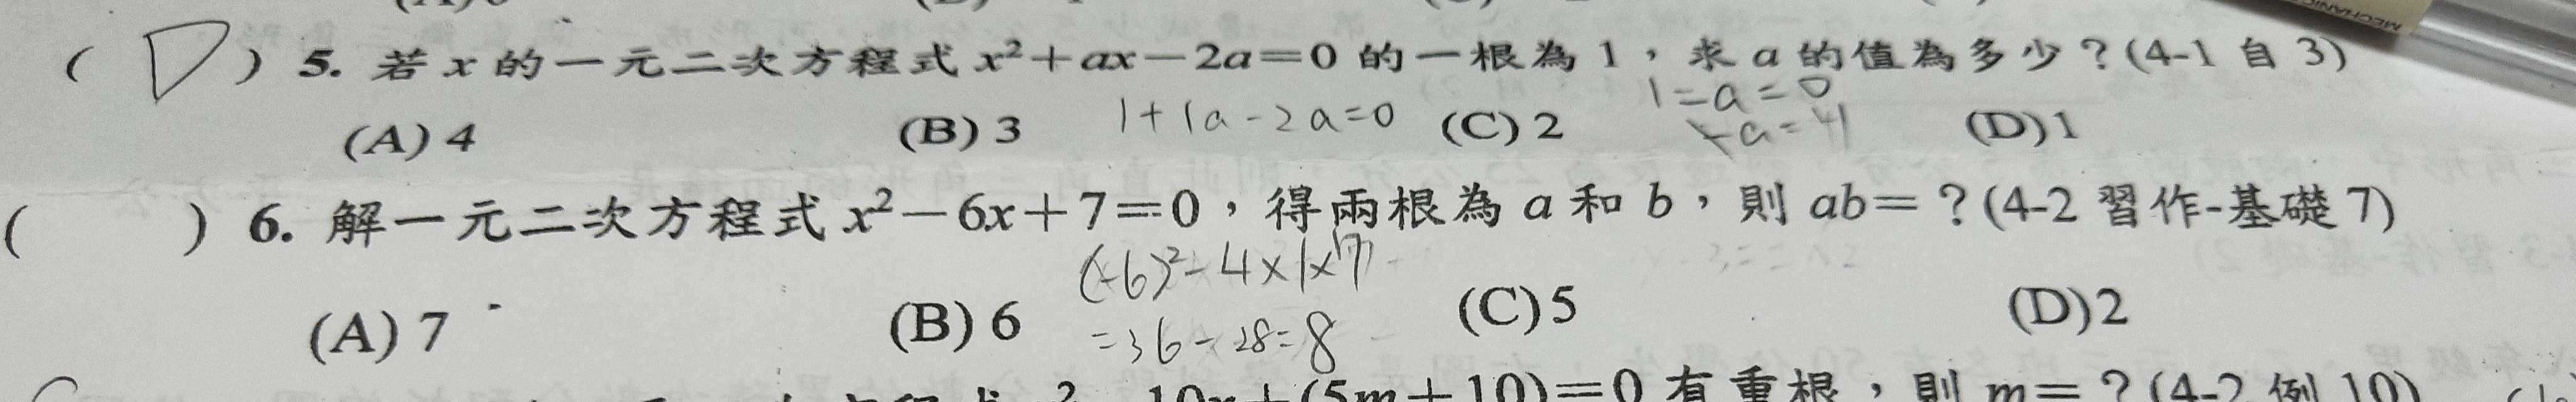 ( D ) 5. 若 x 的一元二次方程式 x²+ax-2a=0 的一根為 1,求 a 的值為多少?(4-1 自 3)
1-a=0
(A) 4 (B) 3 1+1a-2a=0 (C) 2 (D) 1
( ) 6. 解一元二次方程式 x²-6x+7=0,得兩根為 a 和 b,則 ab=?(4-2 習作-基礎 7)
(-6)²-4×1×7
(A) 7 (B) 6 (C) 5 (D) 2
=36-28=8
10x+(5m+10)=0 有重根,則 m=?(4-2 例 10)